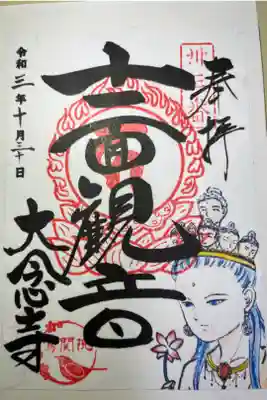 奉拝
十一面観音
令和三年十月三十日
大念寺